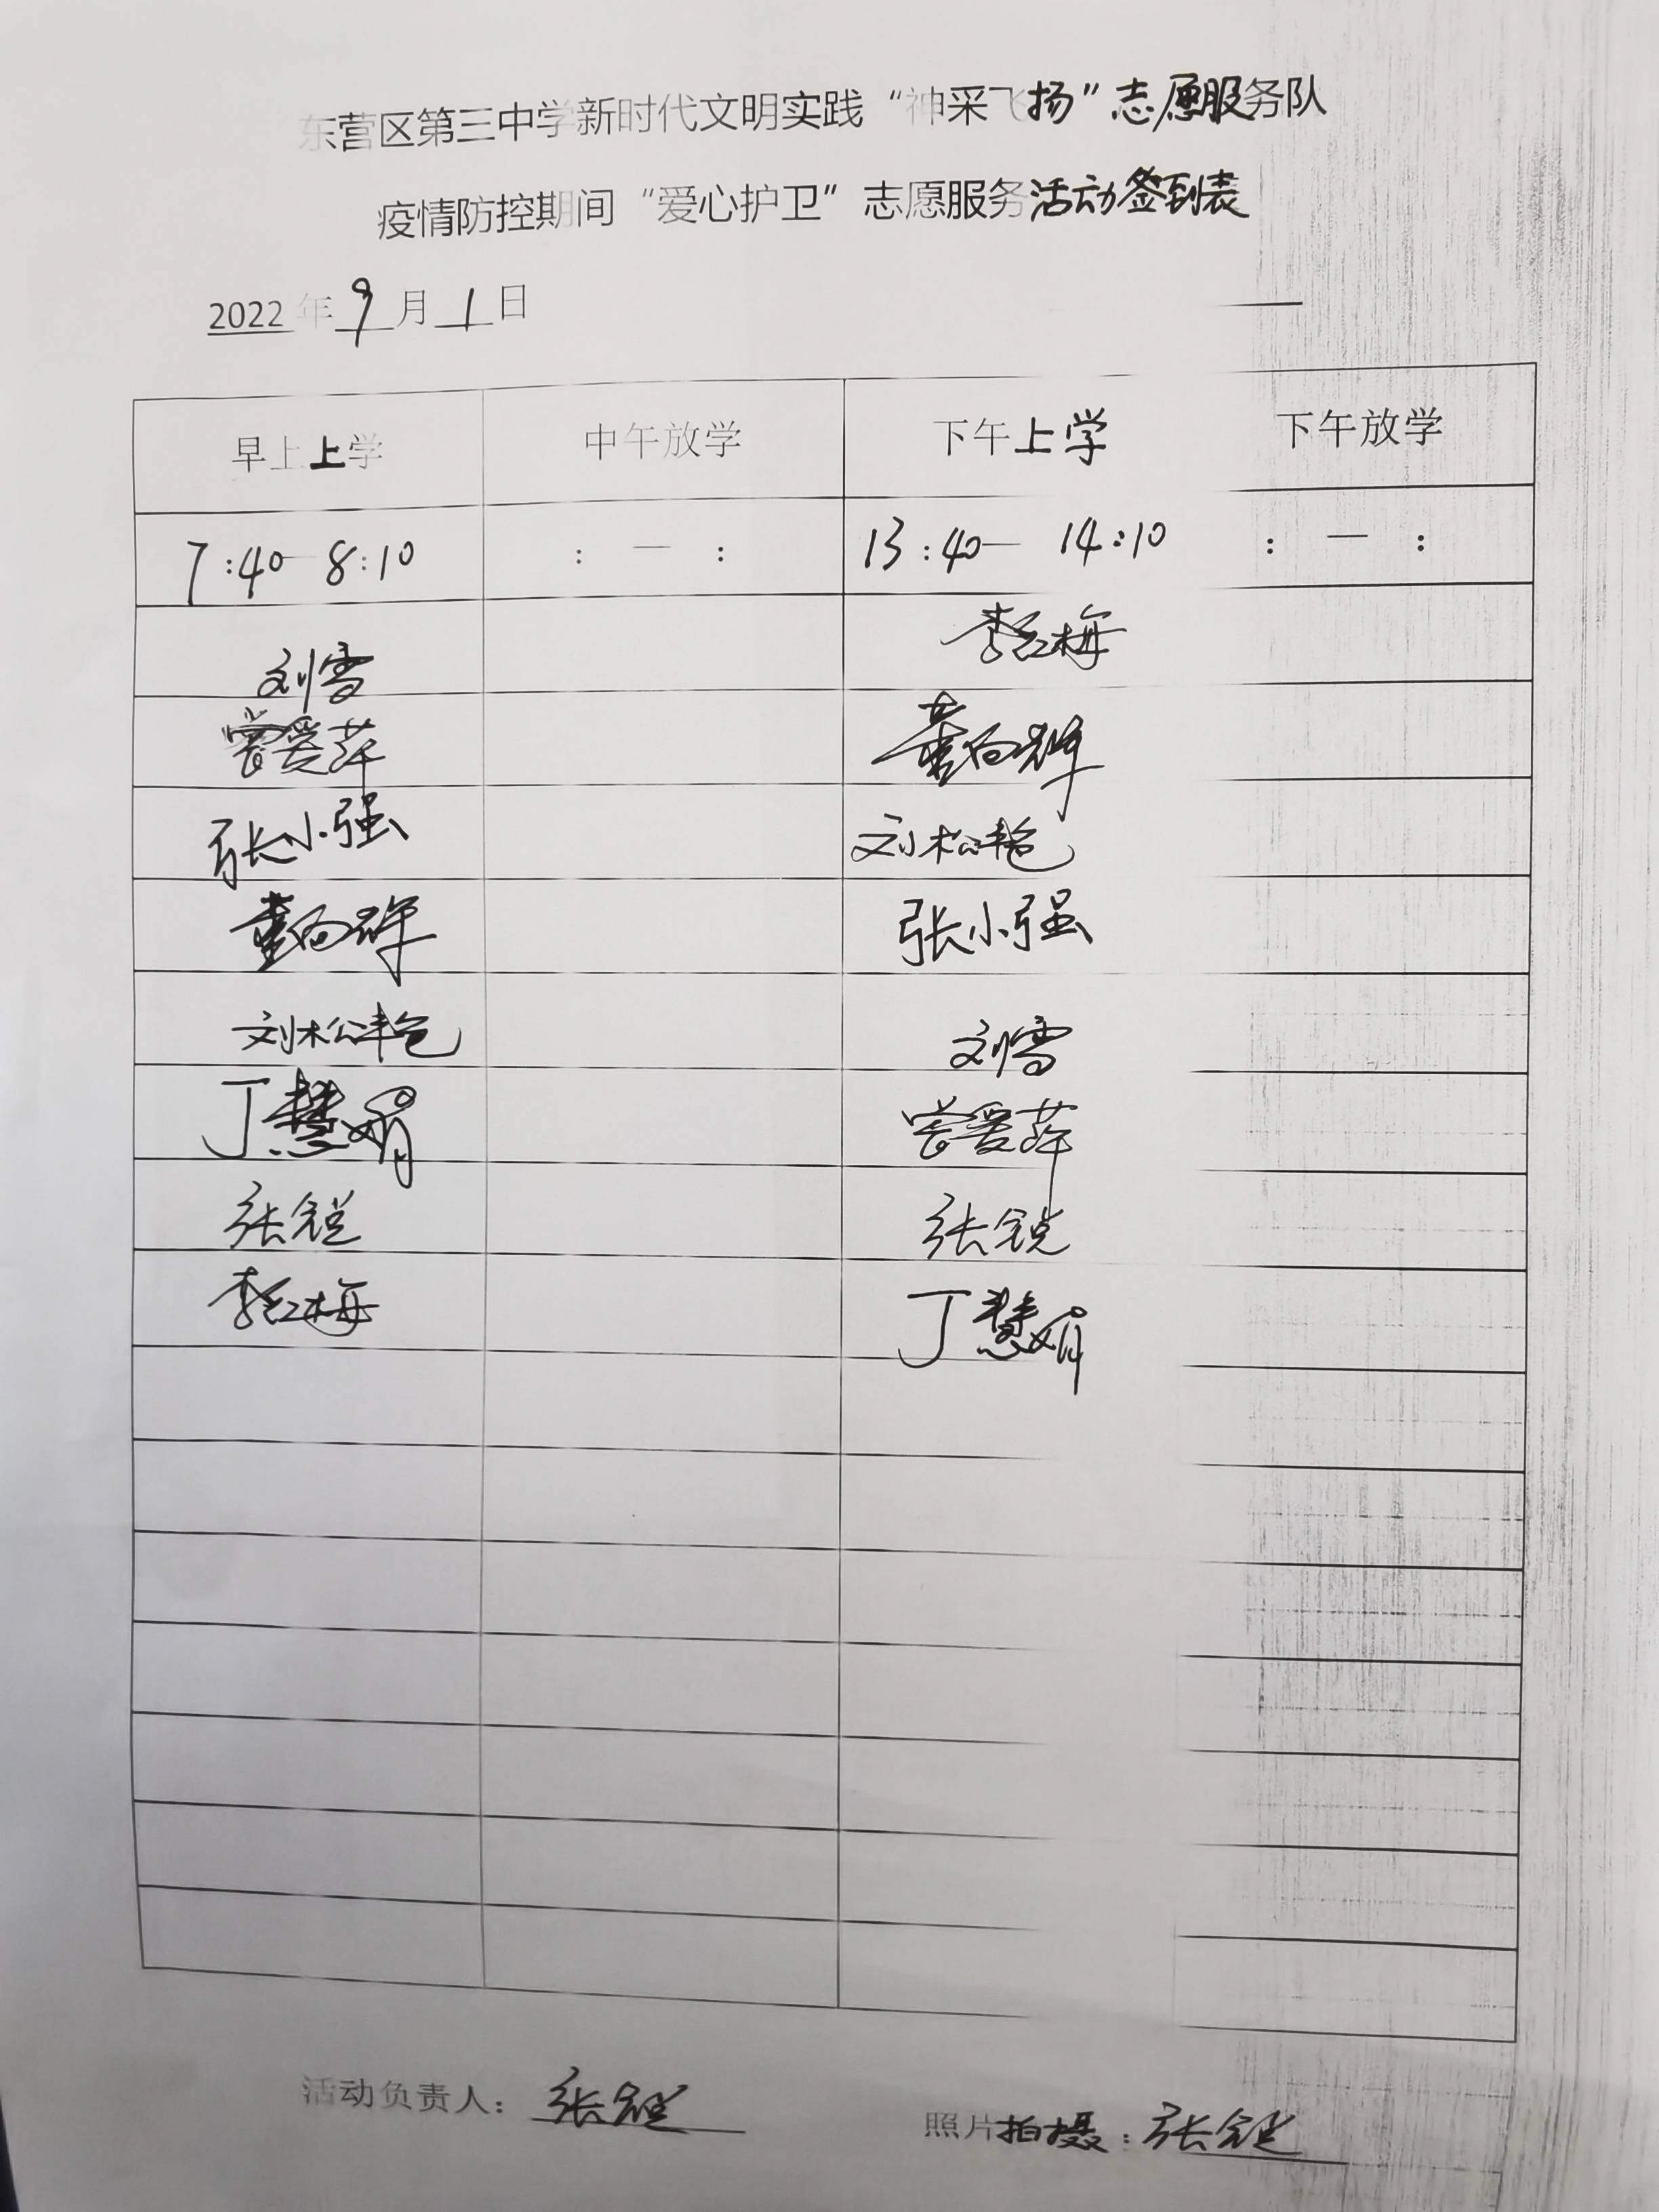 东营区第三中学新时代文明实践“神采飞扬”志愿服务队
疫情防控期间“爱心护卫”志愿服务活动签到表
2022 年 9 月 1 日
早上上学 中午放学 下午上学 下午放学
7:40 8:10 : — : 13:40— 14:10 : — :
李红梅
刘雪
董向辉
张小强 刘松艳
张小强
刘松艳 刘雪
丁慧娟
张
张
李红梅 丁慧娟
活动负责人: 张
照片拍摄: 张